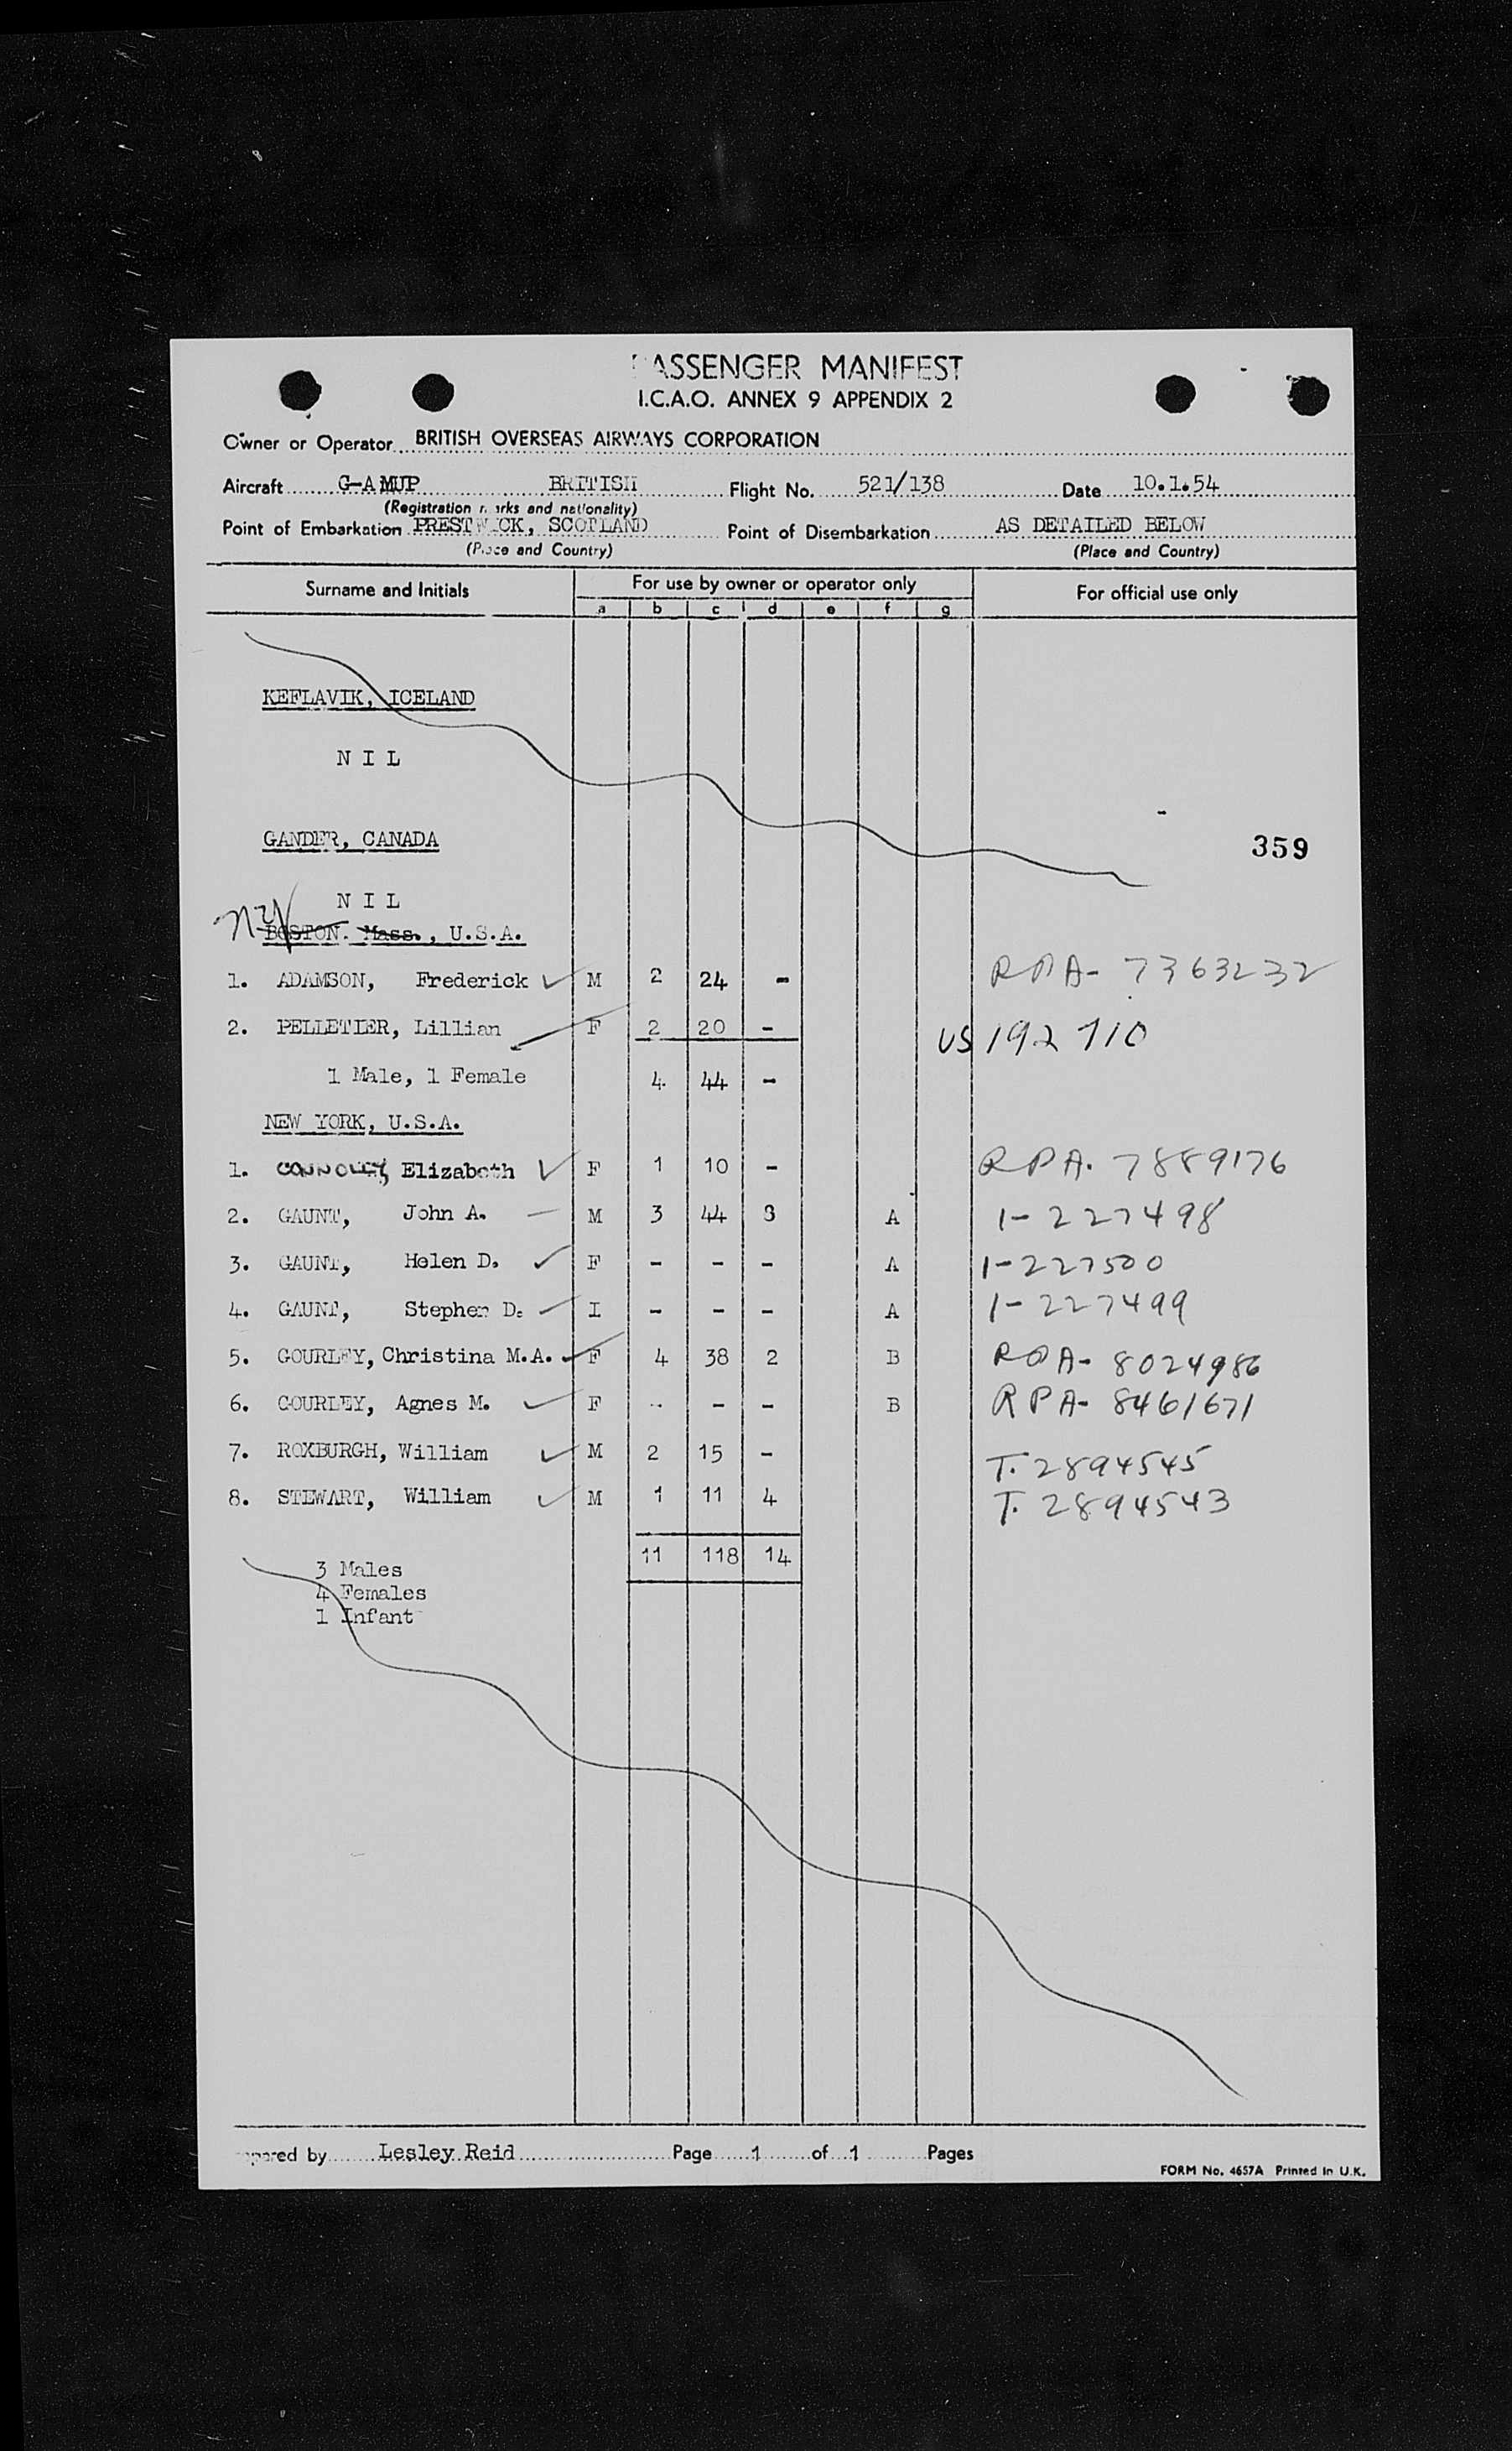 PASSENGER MANIFEST
I.C.A.O. ANNEX 9 APPENDIX 2
Owner or Operator BRITISH OVERSEAS AIRWAYS CORPORATION
Aircraft G-AMUP BRITISH Flight No. 521/138 Date 10.1.54
(Registration marks and nationality)
Point of Embarkation PRESTWICK, SCOTLAND Point of Disembarkation AS DETAILED BELOW
(Place and Country) (Place and Country)
Surname and Initials For use by owner or operator only For official use only
a b c d e f g
KEFLAVIK, ICELAND
N I L
GANDER, CANADA
359
N I L
NY BOSTON. Mass., U.S.A.
1. ADAMSON, Frederick M 2 24 - RPA- 7363232
2. PELLETIER, Lillian F 2 20 - US 192710
1 Male, 1 Female 4 44 -
NEW YORK, U.S.A.
1. CONNOLLY, Elizabeth F 1 10 - RPA. 7889176
2. GAUNT, John A. M 3 44 8 A 1-227498
3. GAUNT, Helen D. F - - - A 1-227500
4. GAUNT, Stephen D. I - - - A 1-227499
5. GOURLEY, Christina M.A. F 4 38 2 B RPA- 8024986
6. GOURLEY, Agnes M. F - - - B RPA- 8461671
7. ROXBURGH, William M 2 15 - T. 2894545
8. STEWART, William M 1 11 4 T. 2894543
11 118 14
3 Males
4 Females
1 Infant
Prepared by Lesley Reid Page 1 of 1 Pages
FORM No. 4657A Printed in U.K.